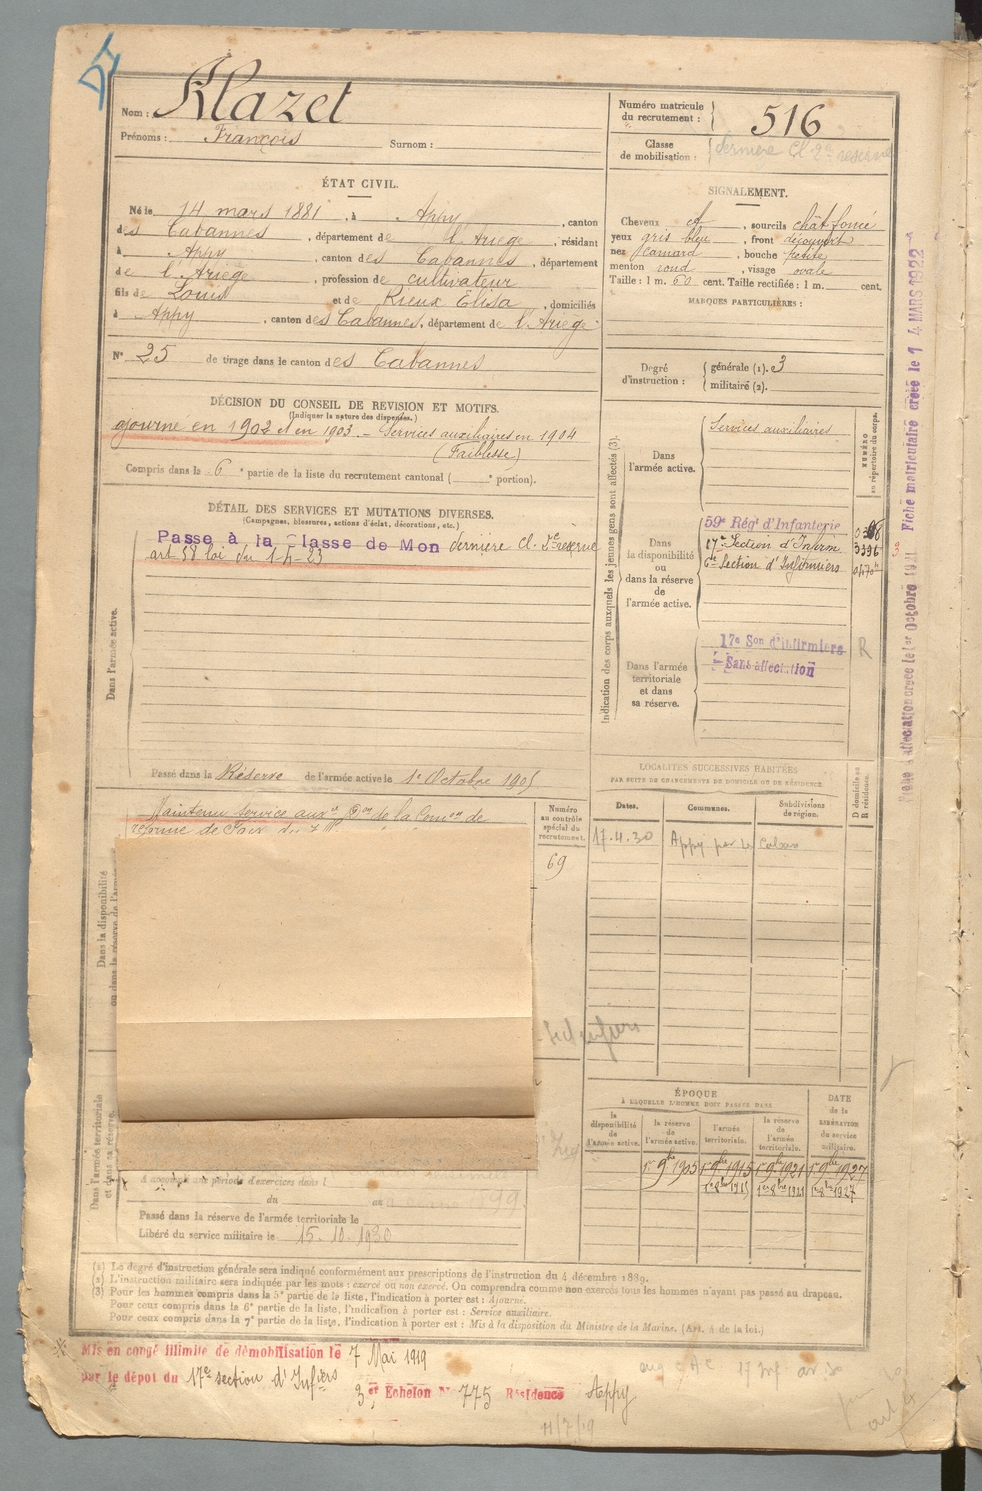 Nom : Alazet
Prénoms : François Surnom :
Numéro matricule du recrutement : 516
Classe de mobilisation : dernière Cl. 2e reserve
ÉTAT CIVIL.
Né le 14 mars 1881, à Appy, canton
des Cabannes, département de l'Ariège, résidant
à Appy, canton des Cabannes, département
de l'Ariège, profession de cultivateur
fils de Louis et de Rieux Elisa, domiciliés
à Appy, canton des Cabannes, département de l'Ariège.
N° 25 de tirage dans le canton des Cabannes
SIGNALEMENT.
Cheveux et, sourcils chât. foncé
yeux gris bleu, front découvert
nez camard, bouche petite
menton rond, visage ovale
Taille : 1 m. 60 cent. Taille rectifiée : 1 m. cent.
MARQUES PARTICULIÈRES :
Degré d'instruction : générale (1). 3
militaire (2).
DÉCISION DU CONSEIL DE REVISION ET MOTIFS.
(Indiquer la nature des dispenses.)
ajourné en 1902 et en 1903. – Services auxiliaires en 1904
(Faiblesse)
Compris dans la 6e partie de la liste du recrutement cantonal ( e portion).
DÉTAIL DES SERVICES ET MUTATIONS DIVERSES.
(Campagnes, blessures, actions d'éclat, décorations, etc.)
Passé à la Classe de Mon dernière Cl. 2e reserve
art 58 loi du 1-4-23
Dans l'armée active.
Passé dans la Réserve de l'armée active le 1er Octobre 1905
Indication des corps auxquels les jeunes gens sont affectés (3).
NUMÉRO au répertoire du corps.
Dans l'armée active.
Services auxiliaires
Dans la disponibilité ou dans la réserve de l'armée active.
59e Régt d'Infanterie
17e Section d'Infirm 3396
6e Section d'Infirmiers
Dans l'armée territoriale et dans sa réserve.
17e Son d'infirmiers R
Sans affectation
Fiche matriculaire créée le 14 MARS 1922
LOCALITÉS SUCCESSIVES HABITÉES
PAR SUITE DE CHANGEMENTS DE DOMICILE OU DE RÉSIDENCE.
Dates. Communes. Subdivisions de région. D domicile ou R résidence.
17.4.30 Appy par Les Cabannes
Maintenu service auxre Don de la Comon de
réforme de Foix du
Numéro au contrôle spécial du recrutement.
69
Dans la disponibilité
ou dans la réserve de l'armée
Dans l'armée territoriale
et dans sa réserve.
A accompli une période d'exercices dans l
du au
Passé dans la réserve de l'armée territoriale le
Libéré du service militaire le 15.10.1930
ÉPOQUE
À LAQUELLE L'HOMME DOIT PASSER DANS
DATE de la LIBÉRATION du service militaire.
la disponibilité de l'armée active. la réserve de l'armée active. l'armée territoriale. la réserve de l'armée territoriale.
1er 9bre 1905 1er 9bre 1915 1er 9bre 1921 1er 9bre 1927
1er 8bre 1915 1er 8bre 1921 1er 8bre 1927
(1) Le degré d'instruction générale sera indiqué conformément aux prescriptions de l'instruction du 4 décembre 1889.
(2) L'instruction militaire sera indiquée par les mots : exercé ou non exercé. On comprendra comme non exercés tous les hommes n'ayant pas passé au drapeau.
(3) Pour les hommes compris dans la 5e partie de la liste, l'indication à porter est : Ajourné.
Pour ceux compris dans la 6e partie de la liste, l'indication à porter est : Service auxiliaire.
Pour ceux compris dans la 7e partie de la liste, l'indication à porter est : Mis à la disposition du Ministre de la Marine. (Art. 4 de la loi.)
Mis en congé illimité de démobilisation le 7 Mai 1919
par le dépôt du 17e section d'Infiers
3er Echelon N° 775 Résidence Appy